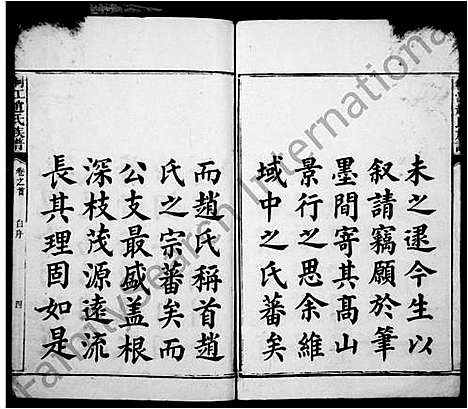 未之逮今生以
叙請竊願於筆
墨間寄其高山
景行之思余維
域中之氏蕃矣
而趙氏稱首趙
氏之宗蕃矣而
公支最盛盖根
深枝茂源遠流
長其理固如是
江趙氏族普
卷之首
四
FamilySearch International